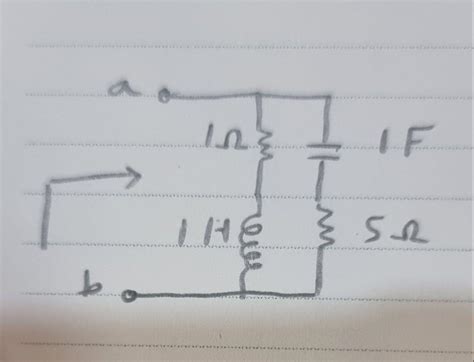 a
1Ω 1F
1H 5Ω
b